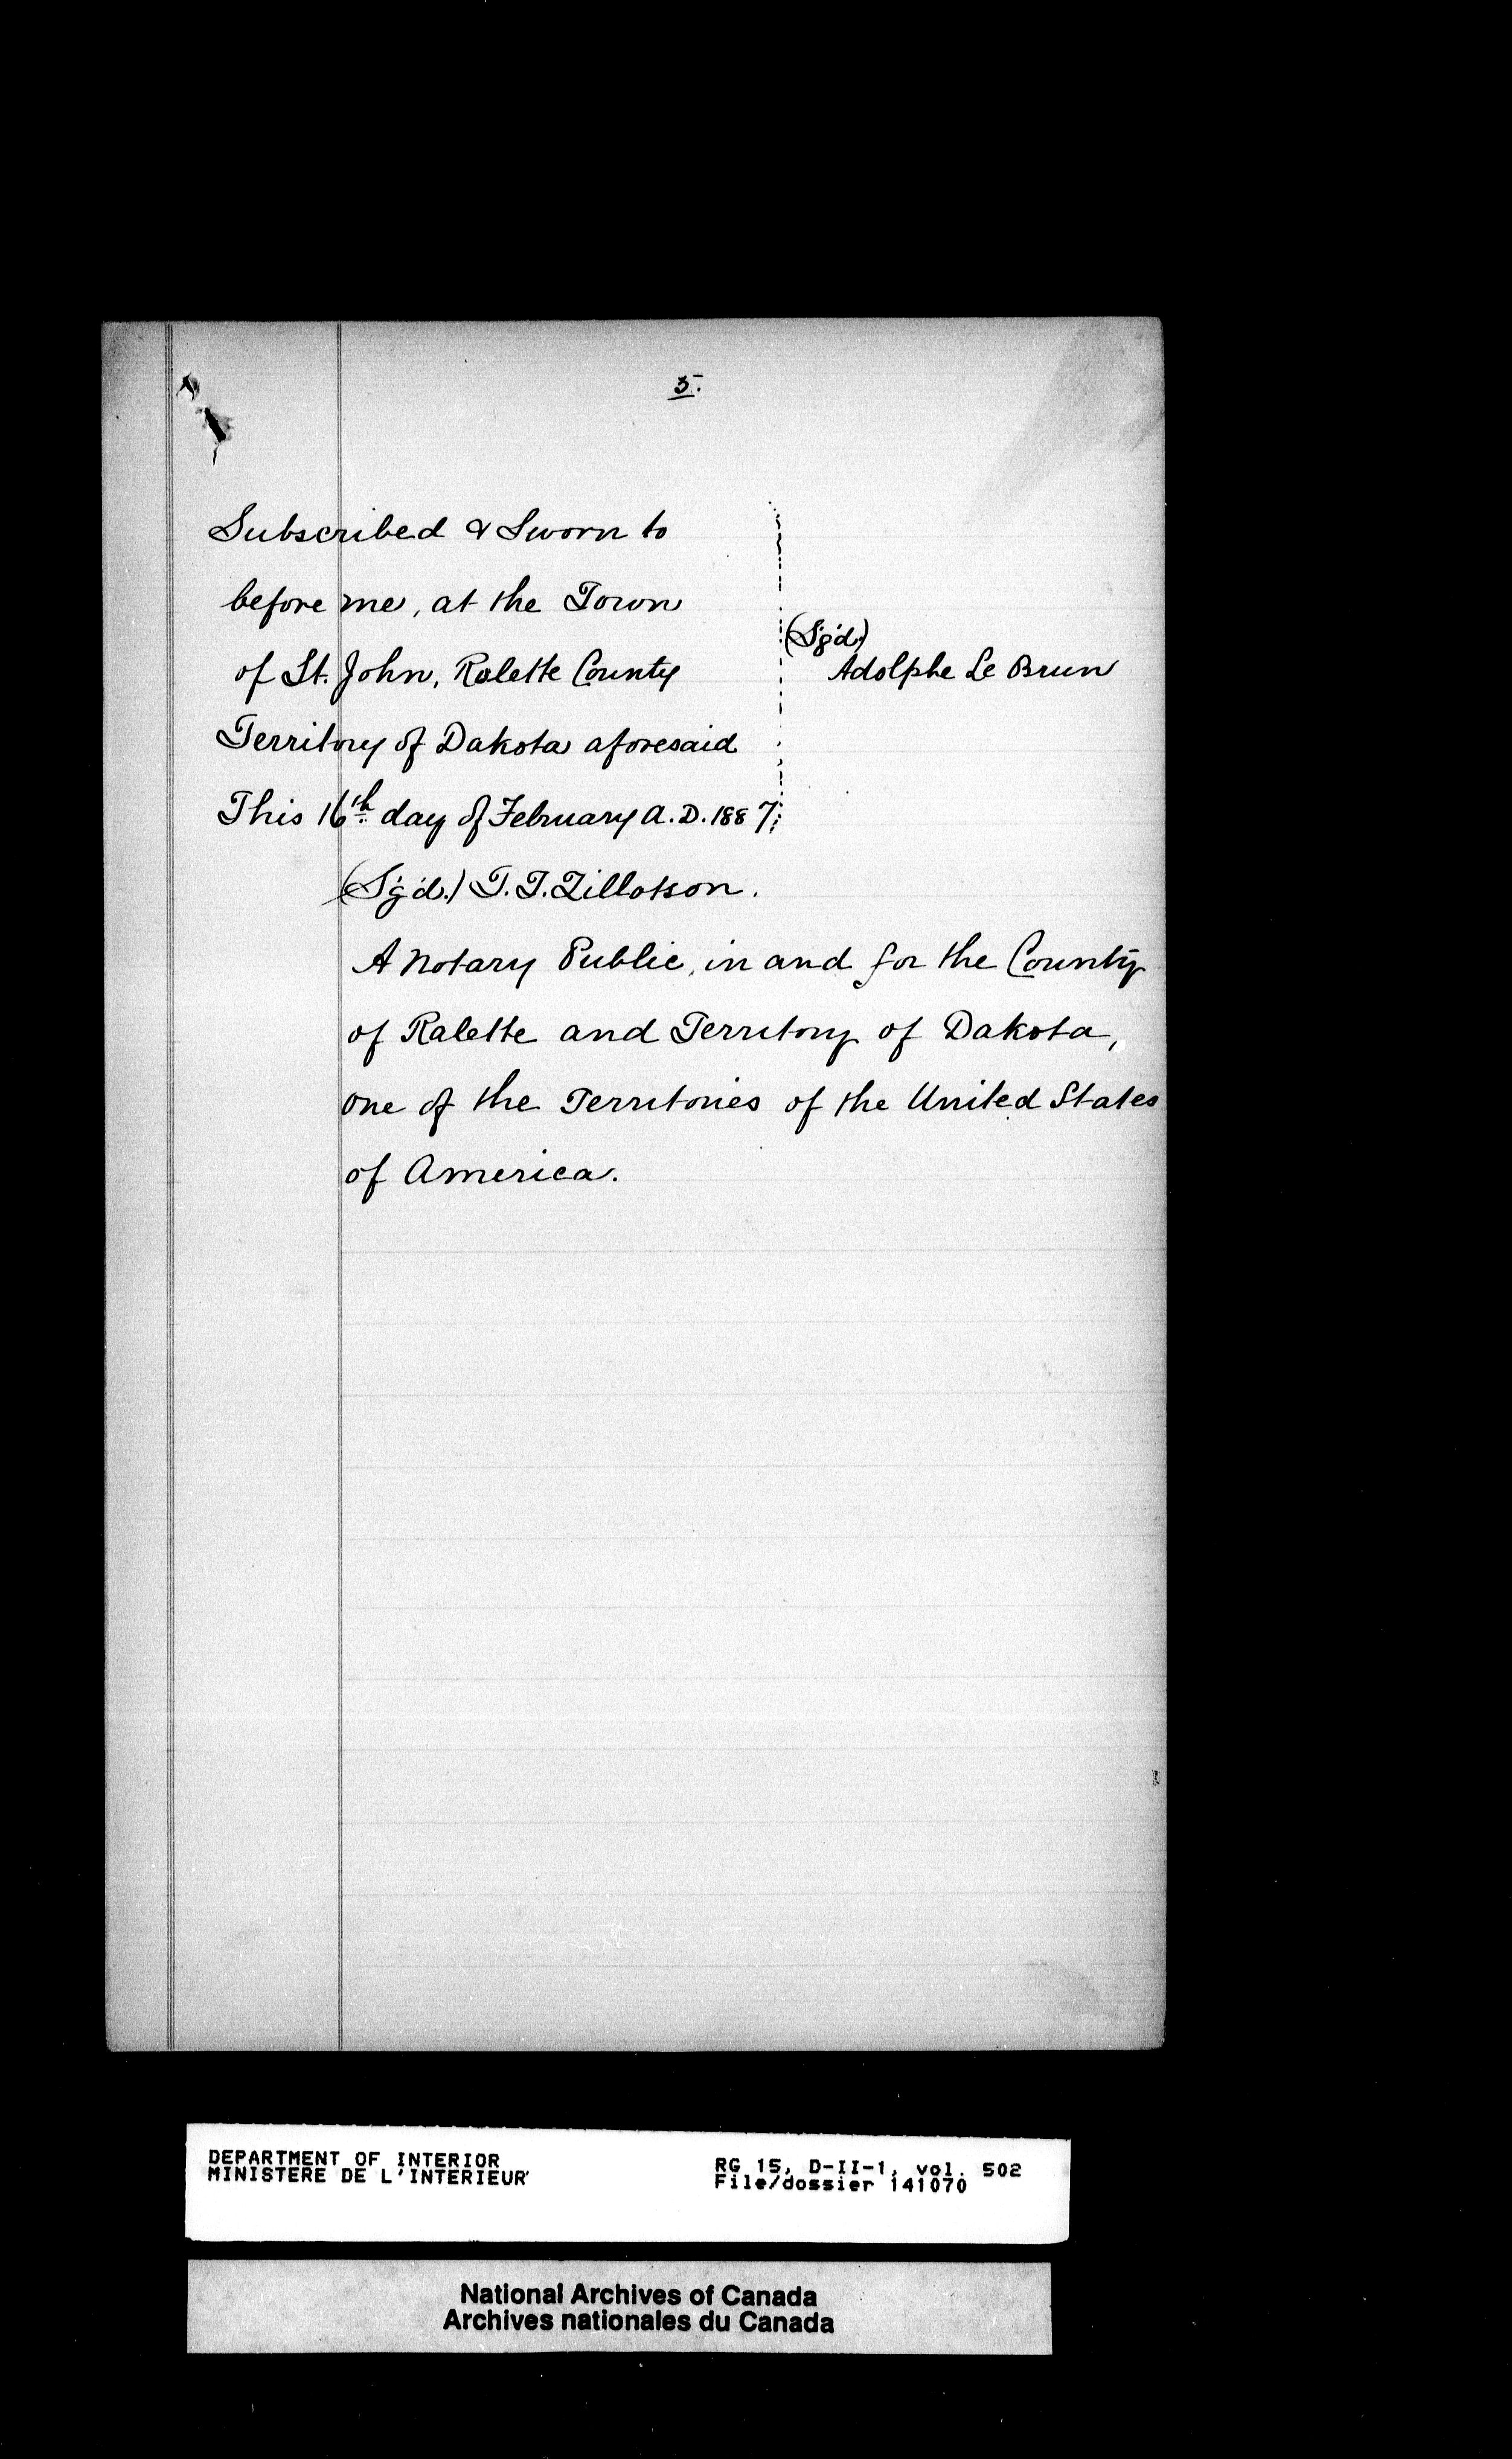 5.
Subscribed & Sworn to
before me, at the Town
of St. John, Rolette County
Territory of Dakota aforesaid
This 16th day of February A.D. 1887
(Sg'd.)
Adolphe Le Brun
(Sg'd.) T. T. Tillotson.
A Notary Public, in and for the County
of Ralette and Territory of Dakota,
one of the Territories of the United States
of America.
DEPARTMENT OF INTERIOR
MINISTERE DE L'INTERIEUR
RG 15, D-II-1, vol. 502
File/dossier 141070
National Archives of Canada
Archives nationales du Canada